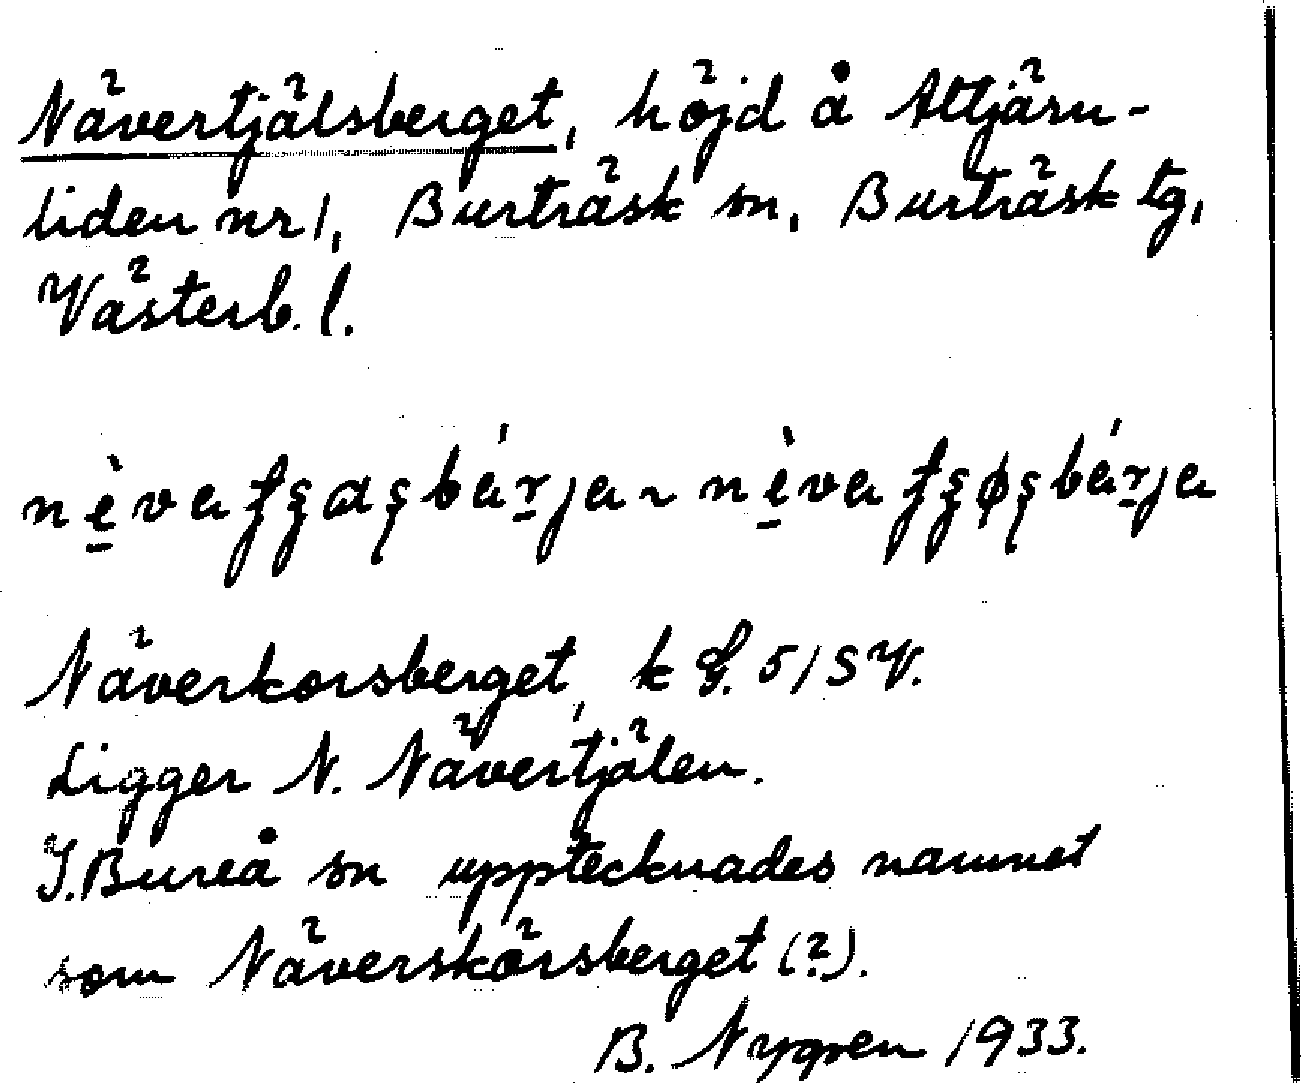 Nävertjälsberget, höjd å Altjärn-
liden nr 1, Burträsk sn, Burträsk tg,
Västerb. l.
Näverkorsberget, k G. 5/SV.
Ligger N. Nävertjälen.
I. Bureå sn upptecknades namnet
som Näverskörsberget (?).
B. Nygren 1933.